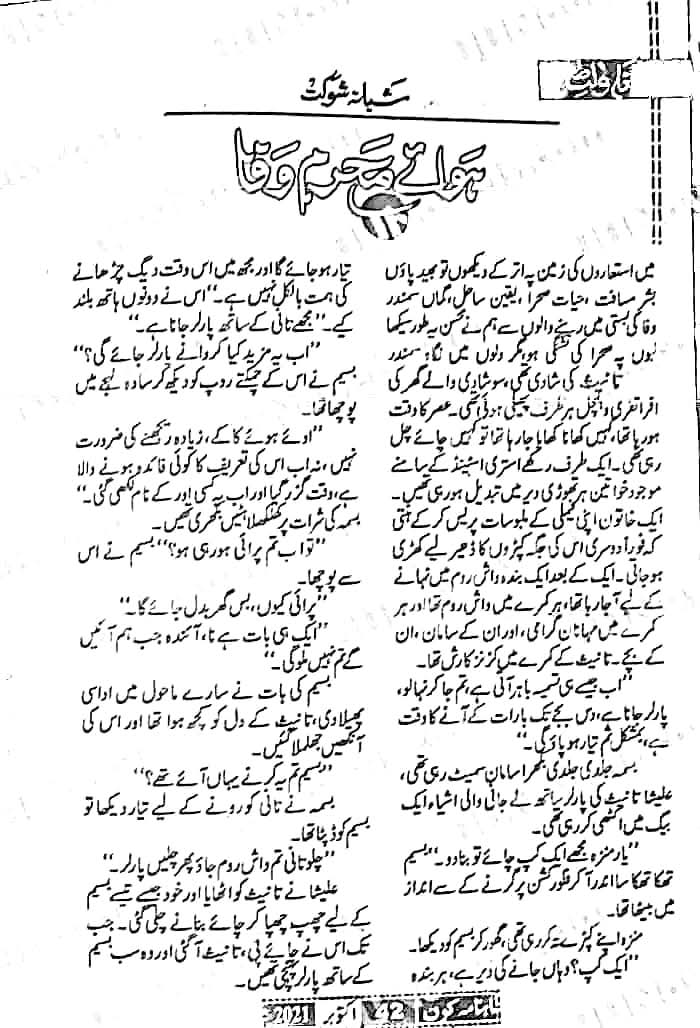 ناولٹ
شبانہ شوکت
ہوائے محرم وفا
میں استعاروں کی زمین پہ اتر کے دیکھوں تو بھید پاؤں
بشر مسافت، حیات صحرا، یقین ساحل، گماں سمندر
وفا کی بستی میں رہنے والوں سے ہم نے محسن یہ طور سیکھا
لبوں پہ صحرا کی تشنگی ہو مگر دلوں میں نگاہ سمندر
تانیث کی شادی تھی، سو شادی والے گھر کی
افراتفری و ہلچل ہر طرف پھیلی ہوئی تھی۔ عصر کا وقت
ہو رہا تھا، کہیں کھانا کھایا جا رہا تھا تو کہیں چائے چل
رہی تھی۔ ایک طرف رکھے استری اسٹینڈ کے سامنے
موجود خواتین ہر تھوڑی دیر میں تبدیل ہو رہی تھیں۔
ایک خاتون اپنی فیملی کے ملبوسات پریس کر کے ہٹتی
کہ فوراً دوسری اس کی جگہ کپڑوں کا ڈھیر لیے کھڑی
ہو جاتی۔ ایک کے بعد ایک بندہ واش روم میں نہانے
کے لیے آ جا رہا تھا، ہر کمرے میں واش روم تھا اور ہر
کمرے میں مہمانان گرامی، اور ان کے سامان، ان
کے بچے۔ تانیث کے کمرے میں کزنز کا رش تھا۔
”اب جیسے ہی تسمیہ باہر آتی ہے، تم جا کر نہا لو،
پارلر جانا ہے، دس بجے تک بارات کے آنے کا وقت
ہے، بمشکل تم تیار ہو پاؤ گی۔“
بسمہ جلدی جلدی بکھرا سامان سمیٹ رہی تھی،
علیشا تانیث کی پارلر ساتھ لے جانی والی اشیاء ایک
بیگ میں اکٹھی کر رہی تھی۔
”یار منزہ مجھے ایک کپ چائے تو بنا دو۔“ بسیم
تھکا تھکا سا اندر آ کر فلور کشن پر گرنے کے سے انداز
میں بیٹھا تھا۔
منزہ اپنے کپڑے تہ کر رہی تھی، گھور کر بسیم کو دیکھا۔
”ایک کپ؟ وہاں جانے کی دیر ہے، ہر بندہ
تیار ہو جائے گا اور مجھ میں اس وقت دیگ چڑھانے
کی ہمت بالکل نہیں ہے۔“ اس نے دونوں ہاتھ بلند
کیے۔ ”مجھے تانی کے ساتھ پارلر جانا ہے۔“
”اب یہ مزید کیا کروانے پارلر جائے گی؟“
بسیم نے اس کے چمکتے روپ کو دیکھ کر سادہ لہجے میں
پوچھا تھا۔
”اوئے ہوئے کاکے، زیادہ ریجھنے کی ضرورت
نہیں، نہ اب اس کی تعریف کا کوئی فائدہ ہونے والا
ہے، وقت گزر گیا اور اب یہ کسی اور کے نام لکھی گئی۔“
بسمہ کی شرارت پر کھلکھلاہٹیں بکھری تھیں۔
”تو اب تم پرائی ہو رہی ہو؟“ بسیم نے اس
سے پوچھا۔
”پرائی کیوں، بس گھر بدل جائے گا۔“
”ایک ہی بات ہے نا، آئندہ جب ہم آئیں
گے تم نہیں ملو گی۔“
بسیم کی بات نے سارے ماحول میں اداسی
پھیلا دی، تانیث کے دل کو کچھ ہوا تھا اور اس کی
آنکھیں جھلملا گئیں۔
”بسیم تم یہ کرنے یہاں آئے تھے؟“
بسمہ نے تانی کو رونے کے لیے تیار دیکھا تو
بسیم کو ڈپٹا تھا۔
”چلو تانی تم واش روم جاؤ پھر چلیں پارلر۔“
علیشا نے تانیث کو اٹھایا اور خود جیسے تیسے بسیم
کے لیے چھپ چھپا کر چائے بنانے چلی گئی۔ جب
تک اس نے چائے پی، تانیث آ گئی اور وہ سب بسیم
کے ساتھ پارلر پہنچی تھیں۔
ماہنامہ کرن 42 اکتوبر 2021